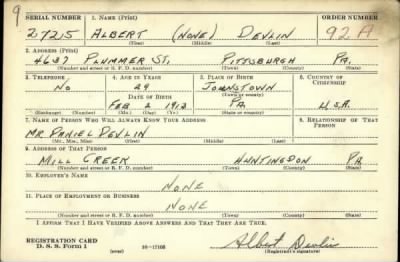 9
SERIAL NUMBER 1. NAME (Print) ORDER NUMBER
27215 ALBERT (NONE) DEVLIN 92A
(First) (Middle) (Last)
2. ADDRESS (Print)
4637 PLUMMER ST. PITTSBURGH PA.
(Number and street or R. F. D. number) (Town) (County) (State)
3. TELEPHONE 4. AGE IN YEARS 5. PLACE OF BIRTH 6. COUNTRY OF CITIZENSHIP
No 29 JOHNSTOWN
DATE OF BIRTH (Town or county)
FEB 2 1912 PA. U.S.A.
(Exchange) (Number) (Mo.) (Day) (Yr.) (State or country)
7. NAME OF PERSON WHO WILL ALWAYS KNOW YOUR ADDRESS 8. RELATIONSHIP OF THAT PERSON
MR. DANIEL DEVLIN
(Mr., Mrs., Miss) (First) (Middle) (Last)
9. ADDRESS OF THAT PERSON
MILL CREEK HUNTINGDON PA
(Number and street or R. F. D. number) (Town) (County) (State)
10. EMPLOYER'S NAME
NONE
11. PLACE OF EMPLOYMENT OR BUSINESS
NONE
(Number and street or R. F. D. number) (Town) (County) (State)
I AFFIRM THAT I HAVE VERIFIED ABOVE ANSWERS AND THAT THEY ARE TRUE.
REGISTRATION CARD
D. S. S. Form 1 (over) 16-17105 Albert Devlin
(Registrant's signature)